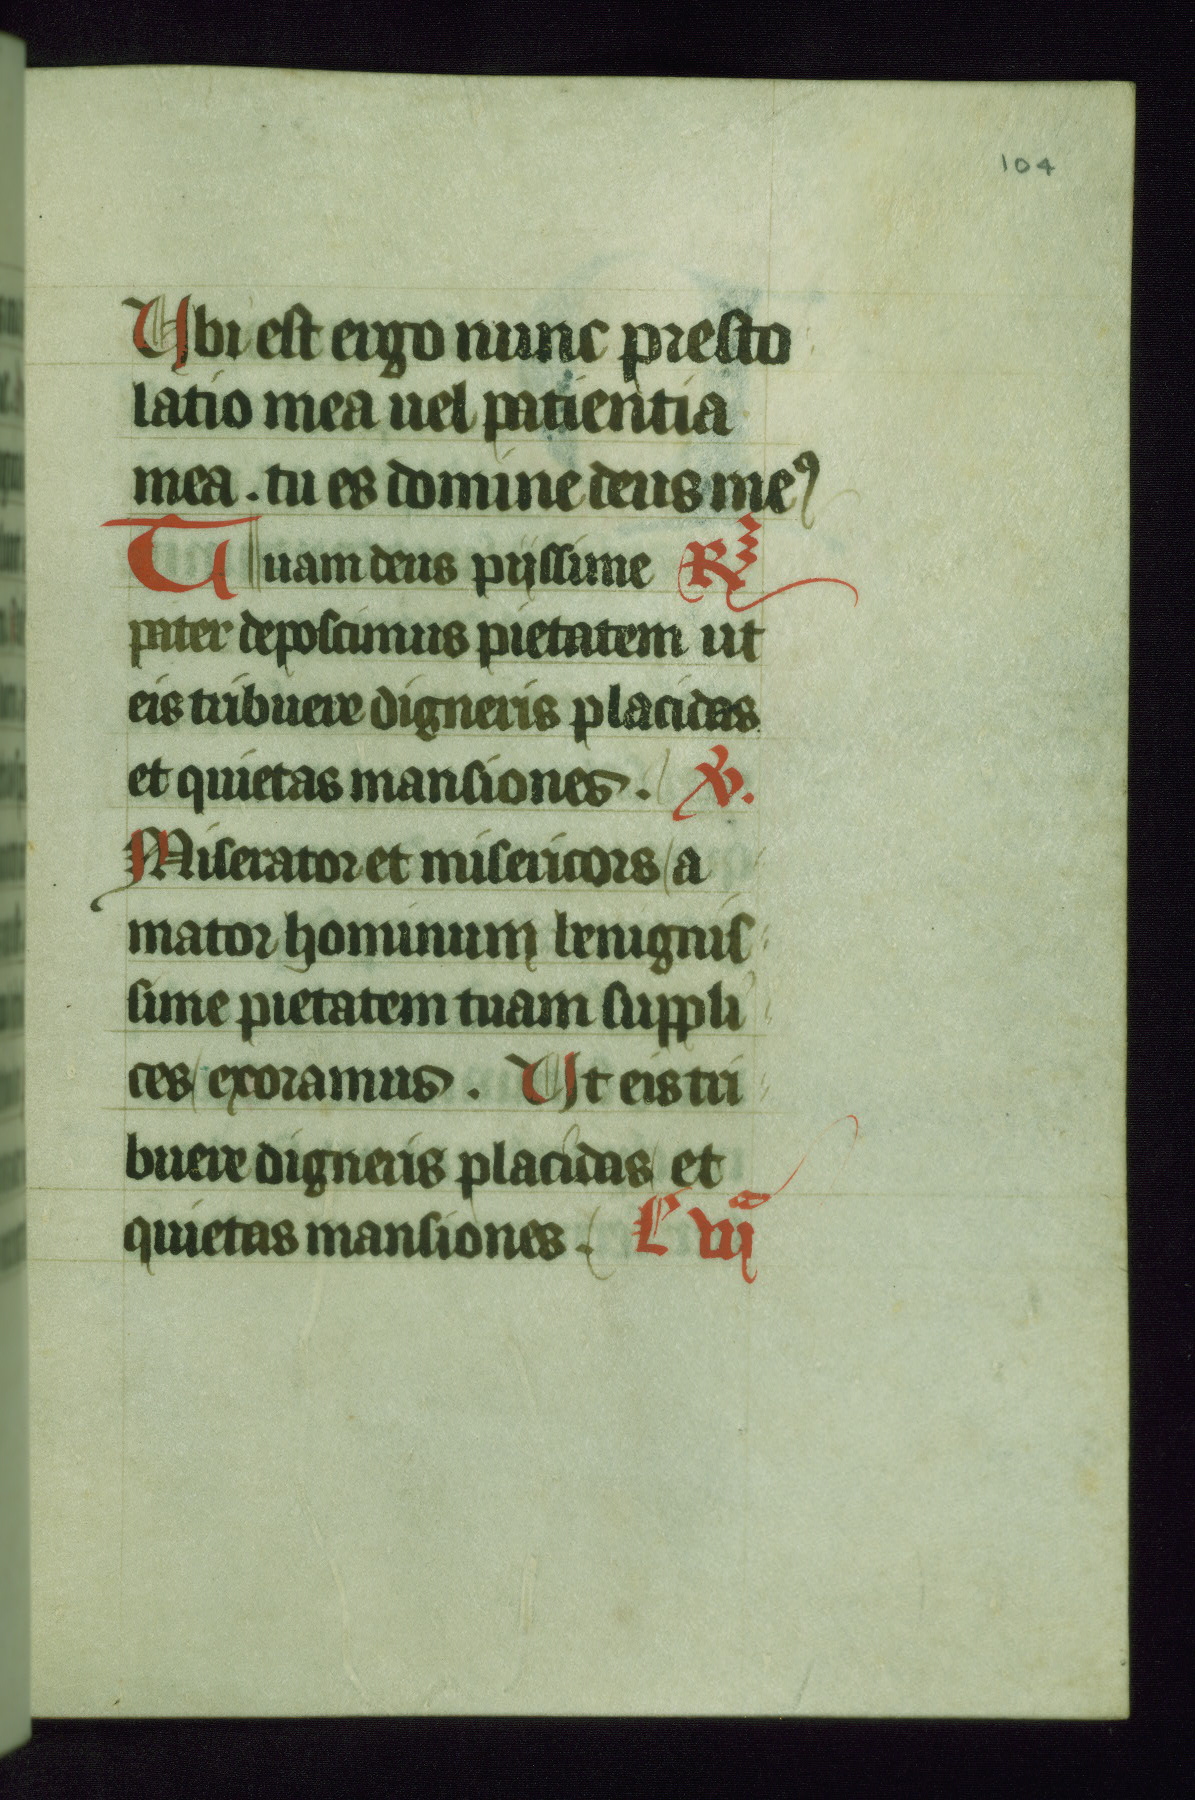 104
Ubi est ergo nunc presto
latio mea uel patientia
mea . tu es domine deus me⁹
Tuam deus pijssime R
pater deposcimus pietatem ut
eis tribuere digneris placidas
et quietas mansiones . V.
Miserator et misericors a
mator hominum benignis
sime pietatem tuam suppli
ces exoramus . Ut eis tri
buere digneris placidas et
quietas mansiones . L vijᵃ